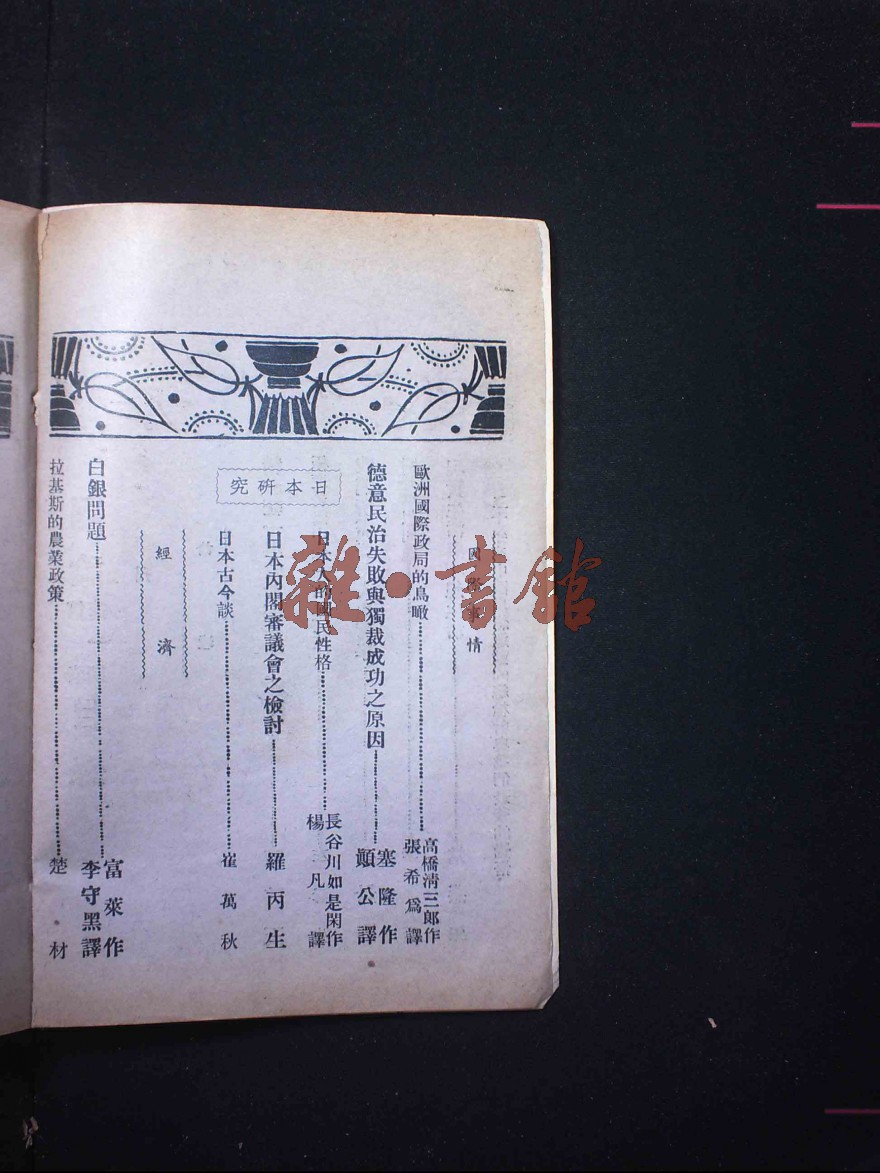 國際事情
歐洲國際政局的鳥瞰……高橋清三郎作 張希爲譯
德意民治失敗與獨裁成功之原因……塞隆作 顚公譯
日本硏究
日本人的國民性格……長谷川如是閑作 楊一凡譯
日本內閣審議會之檢討……羅丙生
日本古今談……崔萬秋
經濟
白銀問題……富萊作 李守黑譯
拉基斯的農業政策……楚材
雜·書館